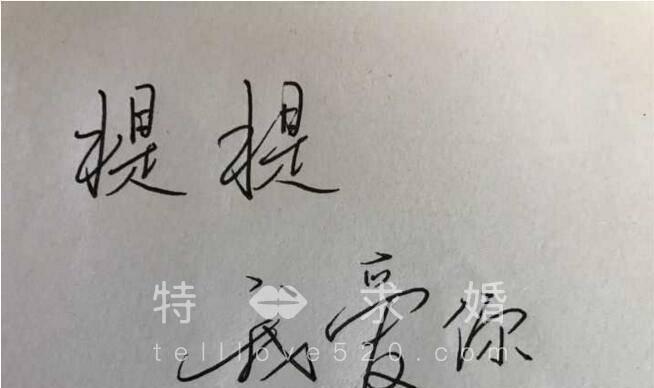 提提
我爱你
特 求婚
telllove520.com